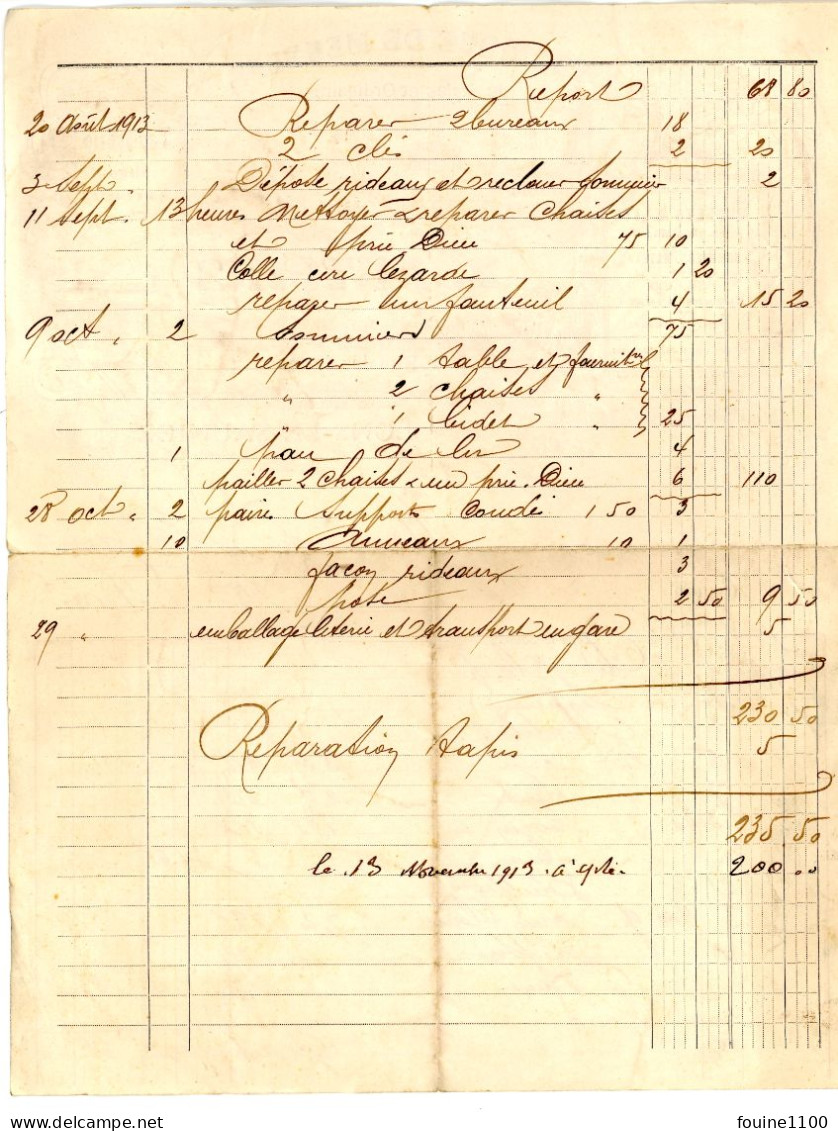 Report 68 80
20 Août 1913 Reparer 2 bureaux 18
2 clés 2 20
3 Sept. Dépose rideaux et reclouer sommier 2
11 Sept. 13 heures Nettoyer & reparer chaises
et prie Dieu 75 10
Colle cire lezarde 1 20
reparer un fauteuil 4 15 20
9 oct " 2 sommiers 75
reparer 1 table et fournitre
" 2 chaises "
" 1 bidet " 25
1 de lit 4
pailler 2 chaises & un prie-Dieu 6 110
28 oct " 2 paires supports coudé 1 50 3
10 Anneaux 10 1
façon rideaux 3
pose 2 50 9 50
29 " emballage literie et transport en gare 5
230 50
Reparation tapis 5
235 50
le 13 Novembre 1913 . a 200 ..
https://www.delcampe.net fouine1100